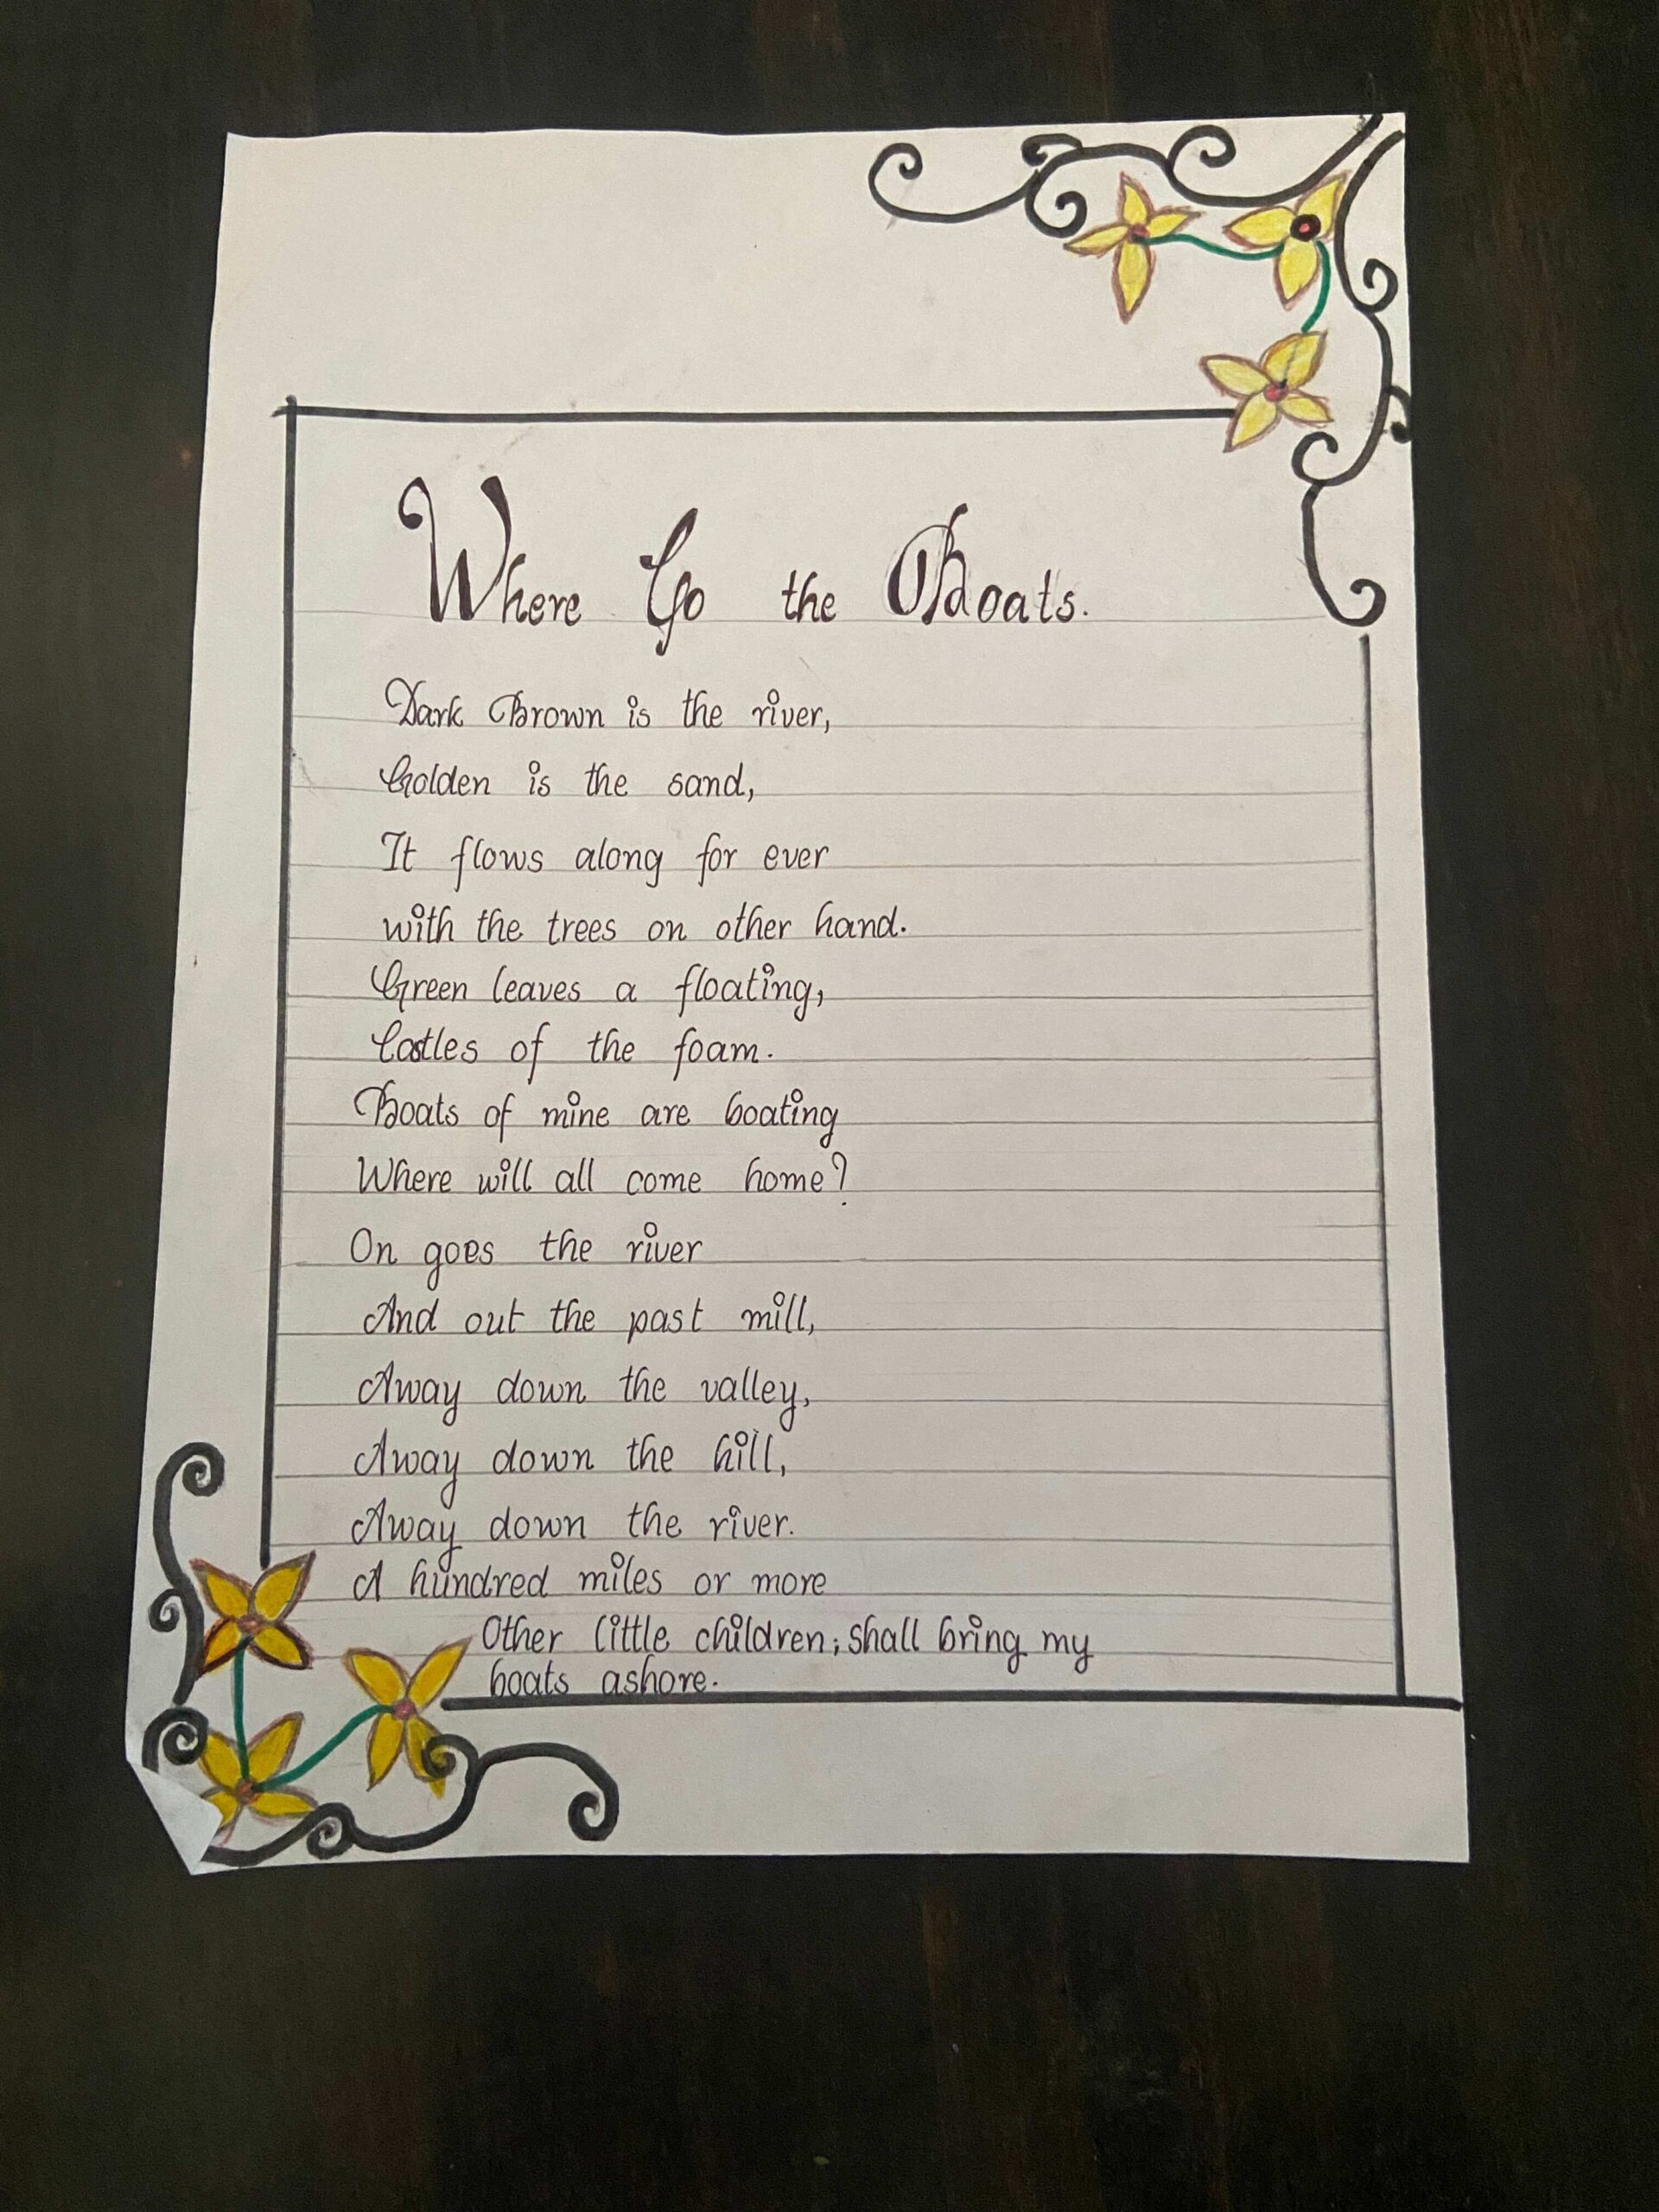 Where Go the Boats.
Dark Brown is the river,
Golden is the sand,
It flows along for ever
with the trees on other hand.
Green leaves a floating,
Castles of the foam.
Boats of mine are boating
Where will all come home?
On goes the river
And out the past mill,
Away down the valley,
Away down the hill,
Away down the river.
A hundred miles or more
Other little children; shall bring my
boats ashore.